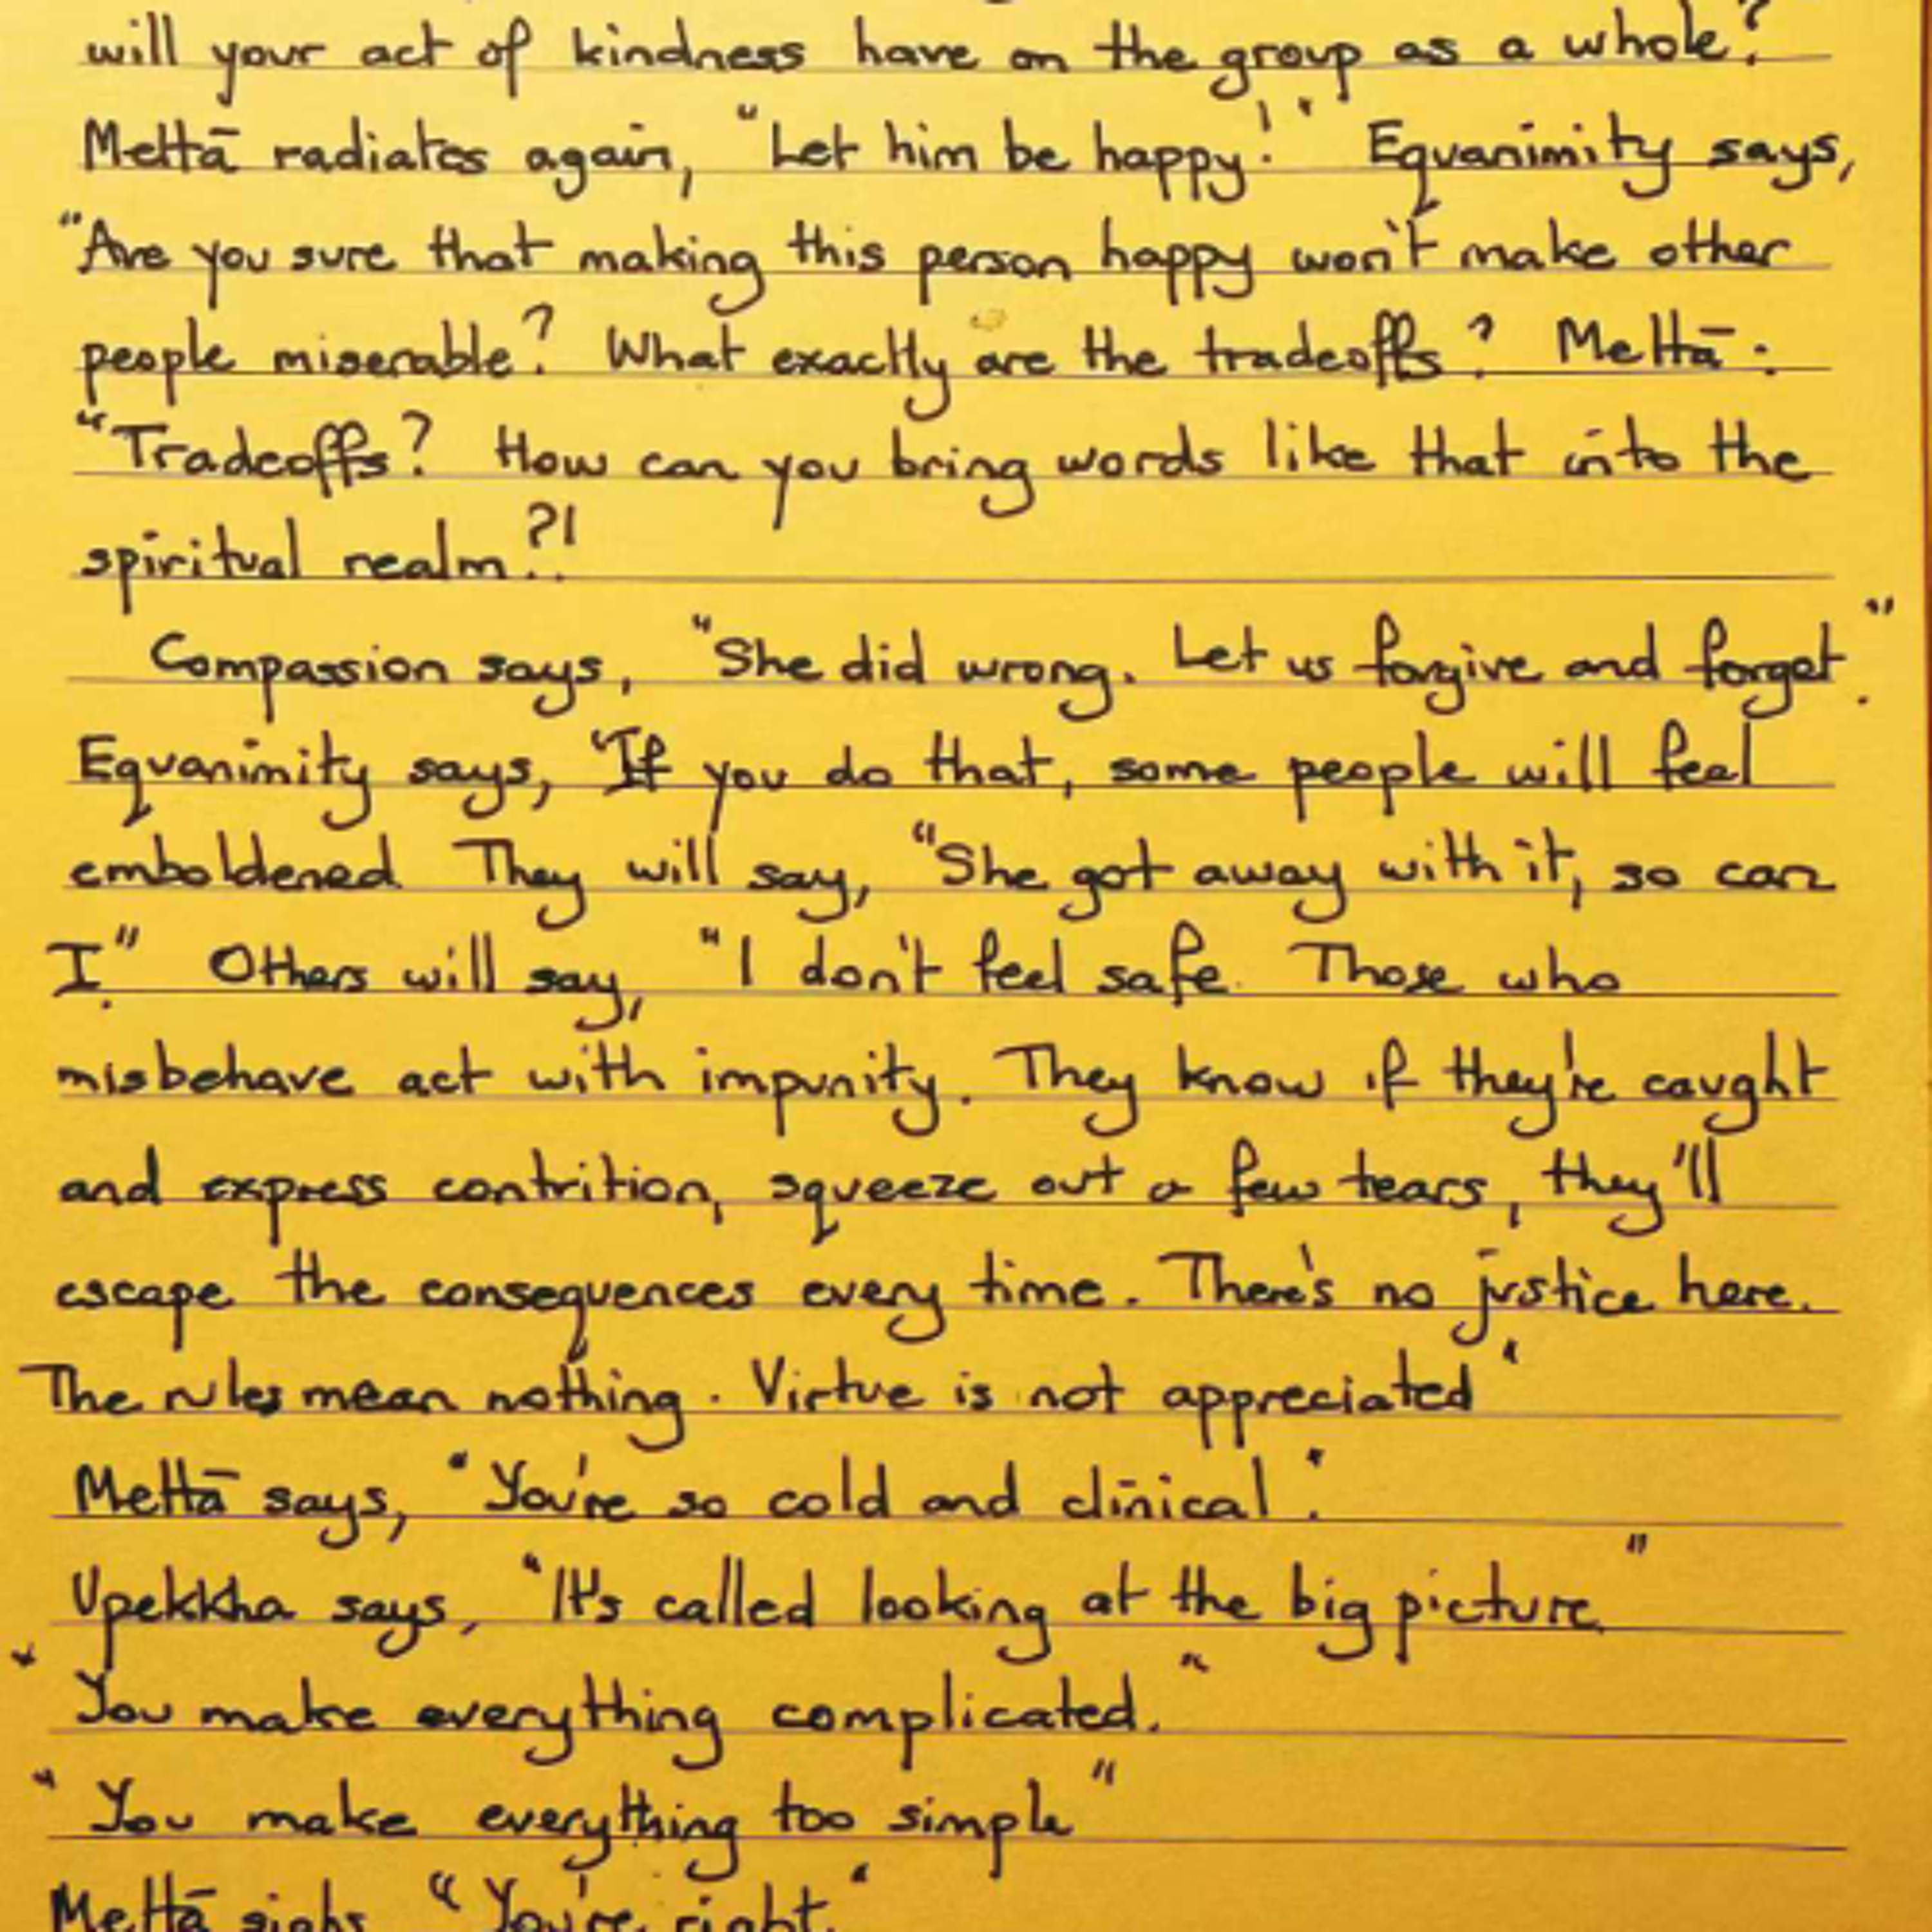 will your act of kindness have on the group as a whole?
Mettā radiates again, "Let him be happy!" Equanimity says,
"Are you sure that making this person happy won't make other
people miserable? What exactly are the tradeoffs? Mettā:
"Tradeoffs? How can you bring words like that into the
spiritual realm?!
Compassion says, "She did wrong. Let us forgive and forget."
Equanimity says, "If you do that, some people will feel
emboldened. They will say, "She got away with it, so can
I." Others will say, "I don't feel safe. Those who
misbehave act with impunity. They know if they're caught
and express contrition, squeeze out a few tears, they'll
escape the consequences every time. There's no justice here.
The rules mean nothing. Virtue is not appreciated"
Mettā says, "You're so cold and clinical."
Upekkha says, "It's called looking at the big picture."
"You make everything complicated."
"You make everything too simple"
Mettā sighs "You're right."